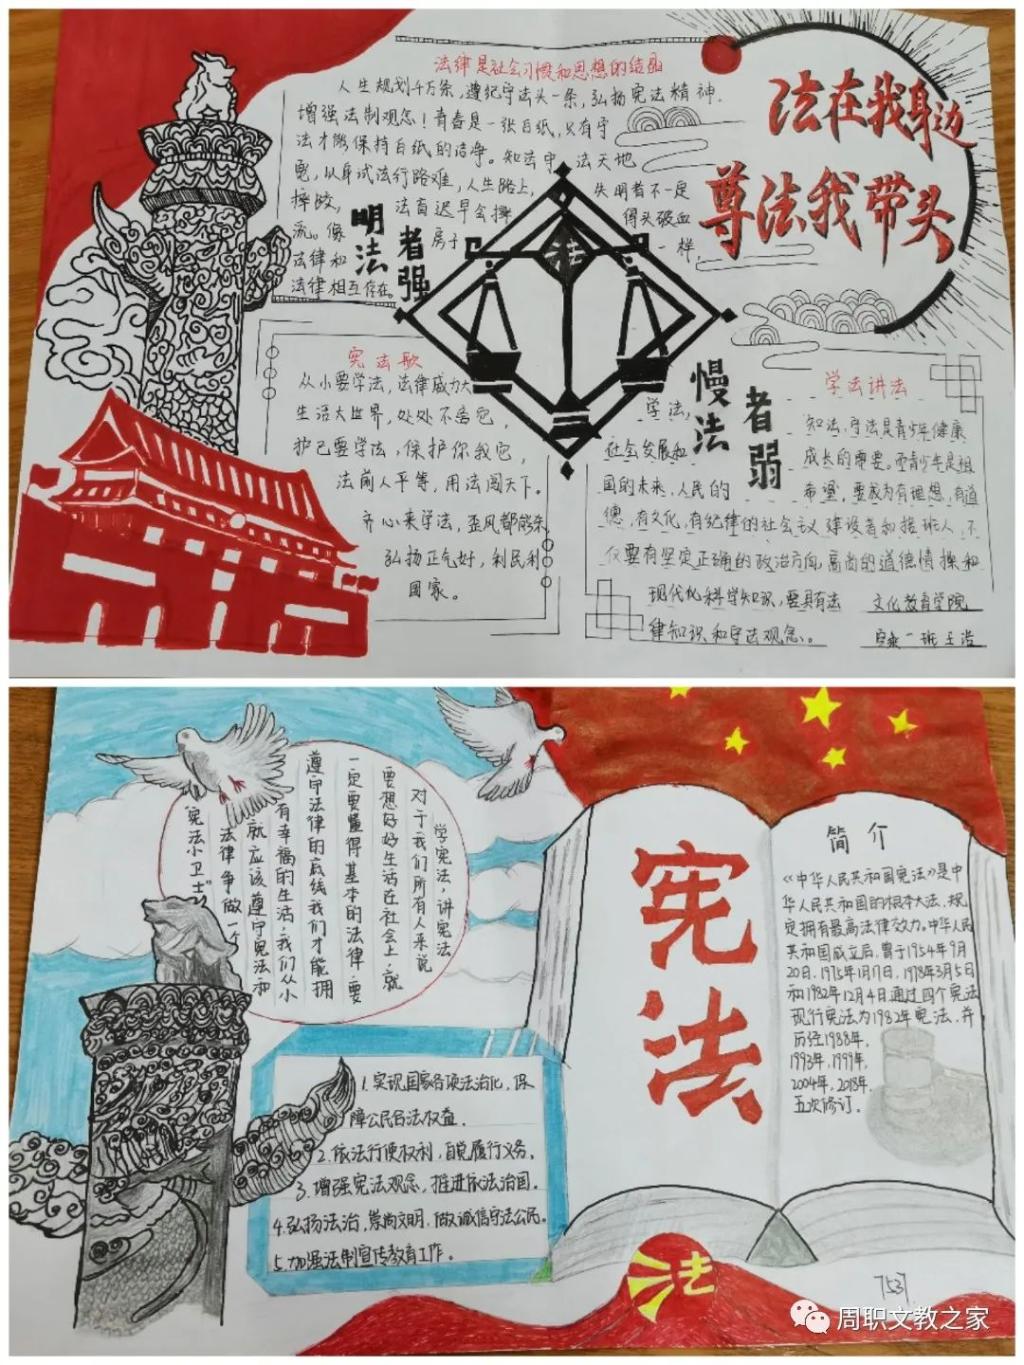 法律是社会习惯和思想的结晶
人生规划千万条,遵纪守法头一条,弘扬宪法精神.
增强法制观念!青春是一张白纸,只有守
法才能保持白纸的洁净。知法守法天地
宽,以身试法行路难,人生路上,失明者不一定
摔跤,法盲迟早会摔得头破血
流。像房子一样,
法律和
法律相互存在。
明法者强
法在我身边
尊法我带头
宪法歌
从小要学法,法律威力大
生活大世界,处处不离它,
护己要学法,保护你我它,
法前人平等,用法闯天下。
齐心来学法,歪风都能杀
弘扬正气好,利民利
国家。
慢法者弱
学法讲法
学法,知法,守法是青少年健康
社会发展和成长的需要。而青少年是祖
国的未来,人民的希望,要成为有理想,有道
德,有文化,有纪律的社会主义建设者和接班人,不
仅要有坚定正确的政治方向,高尚的道德情操和
现代化科学知识,要具有法
律知识和守法观念。
文化教育学院
学宪法,讲宪法
对于我们所有人来说
要想好好生活在社会上,就
一定要懂得基本的法律要
遵守法律的底线我们才能拥
有幸福的生活,我们从小
就应该遵守宪法和
法律争做一个
“宪法小卫士”
1.实现国家各项法治化,保
障公民合法权益.
2.依法行使权利,自觉履行义务。
3.增强宪法观念,推进依法治国。
4.弘扬法治,崇尚文明,做诚信守法公民。
5.加强法制宣传教育工作。
宪法
简介
《中华人民共和国宪法》是中
华人民共和国的根本大法,规
定拥有最高法律效力。中华人民
共和国成立后,曾于1954年9月
20日,1975年1月17日,1978年3月5日
和1982年12月4日通过四个宪法
现行宪法为1982年宪法,并
历经1988年,
1993年,1999年,
2004年,2018年,
五次修订.
法
周职文教之家